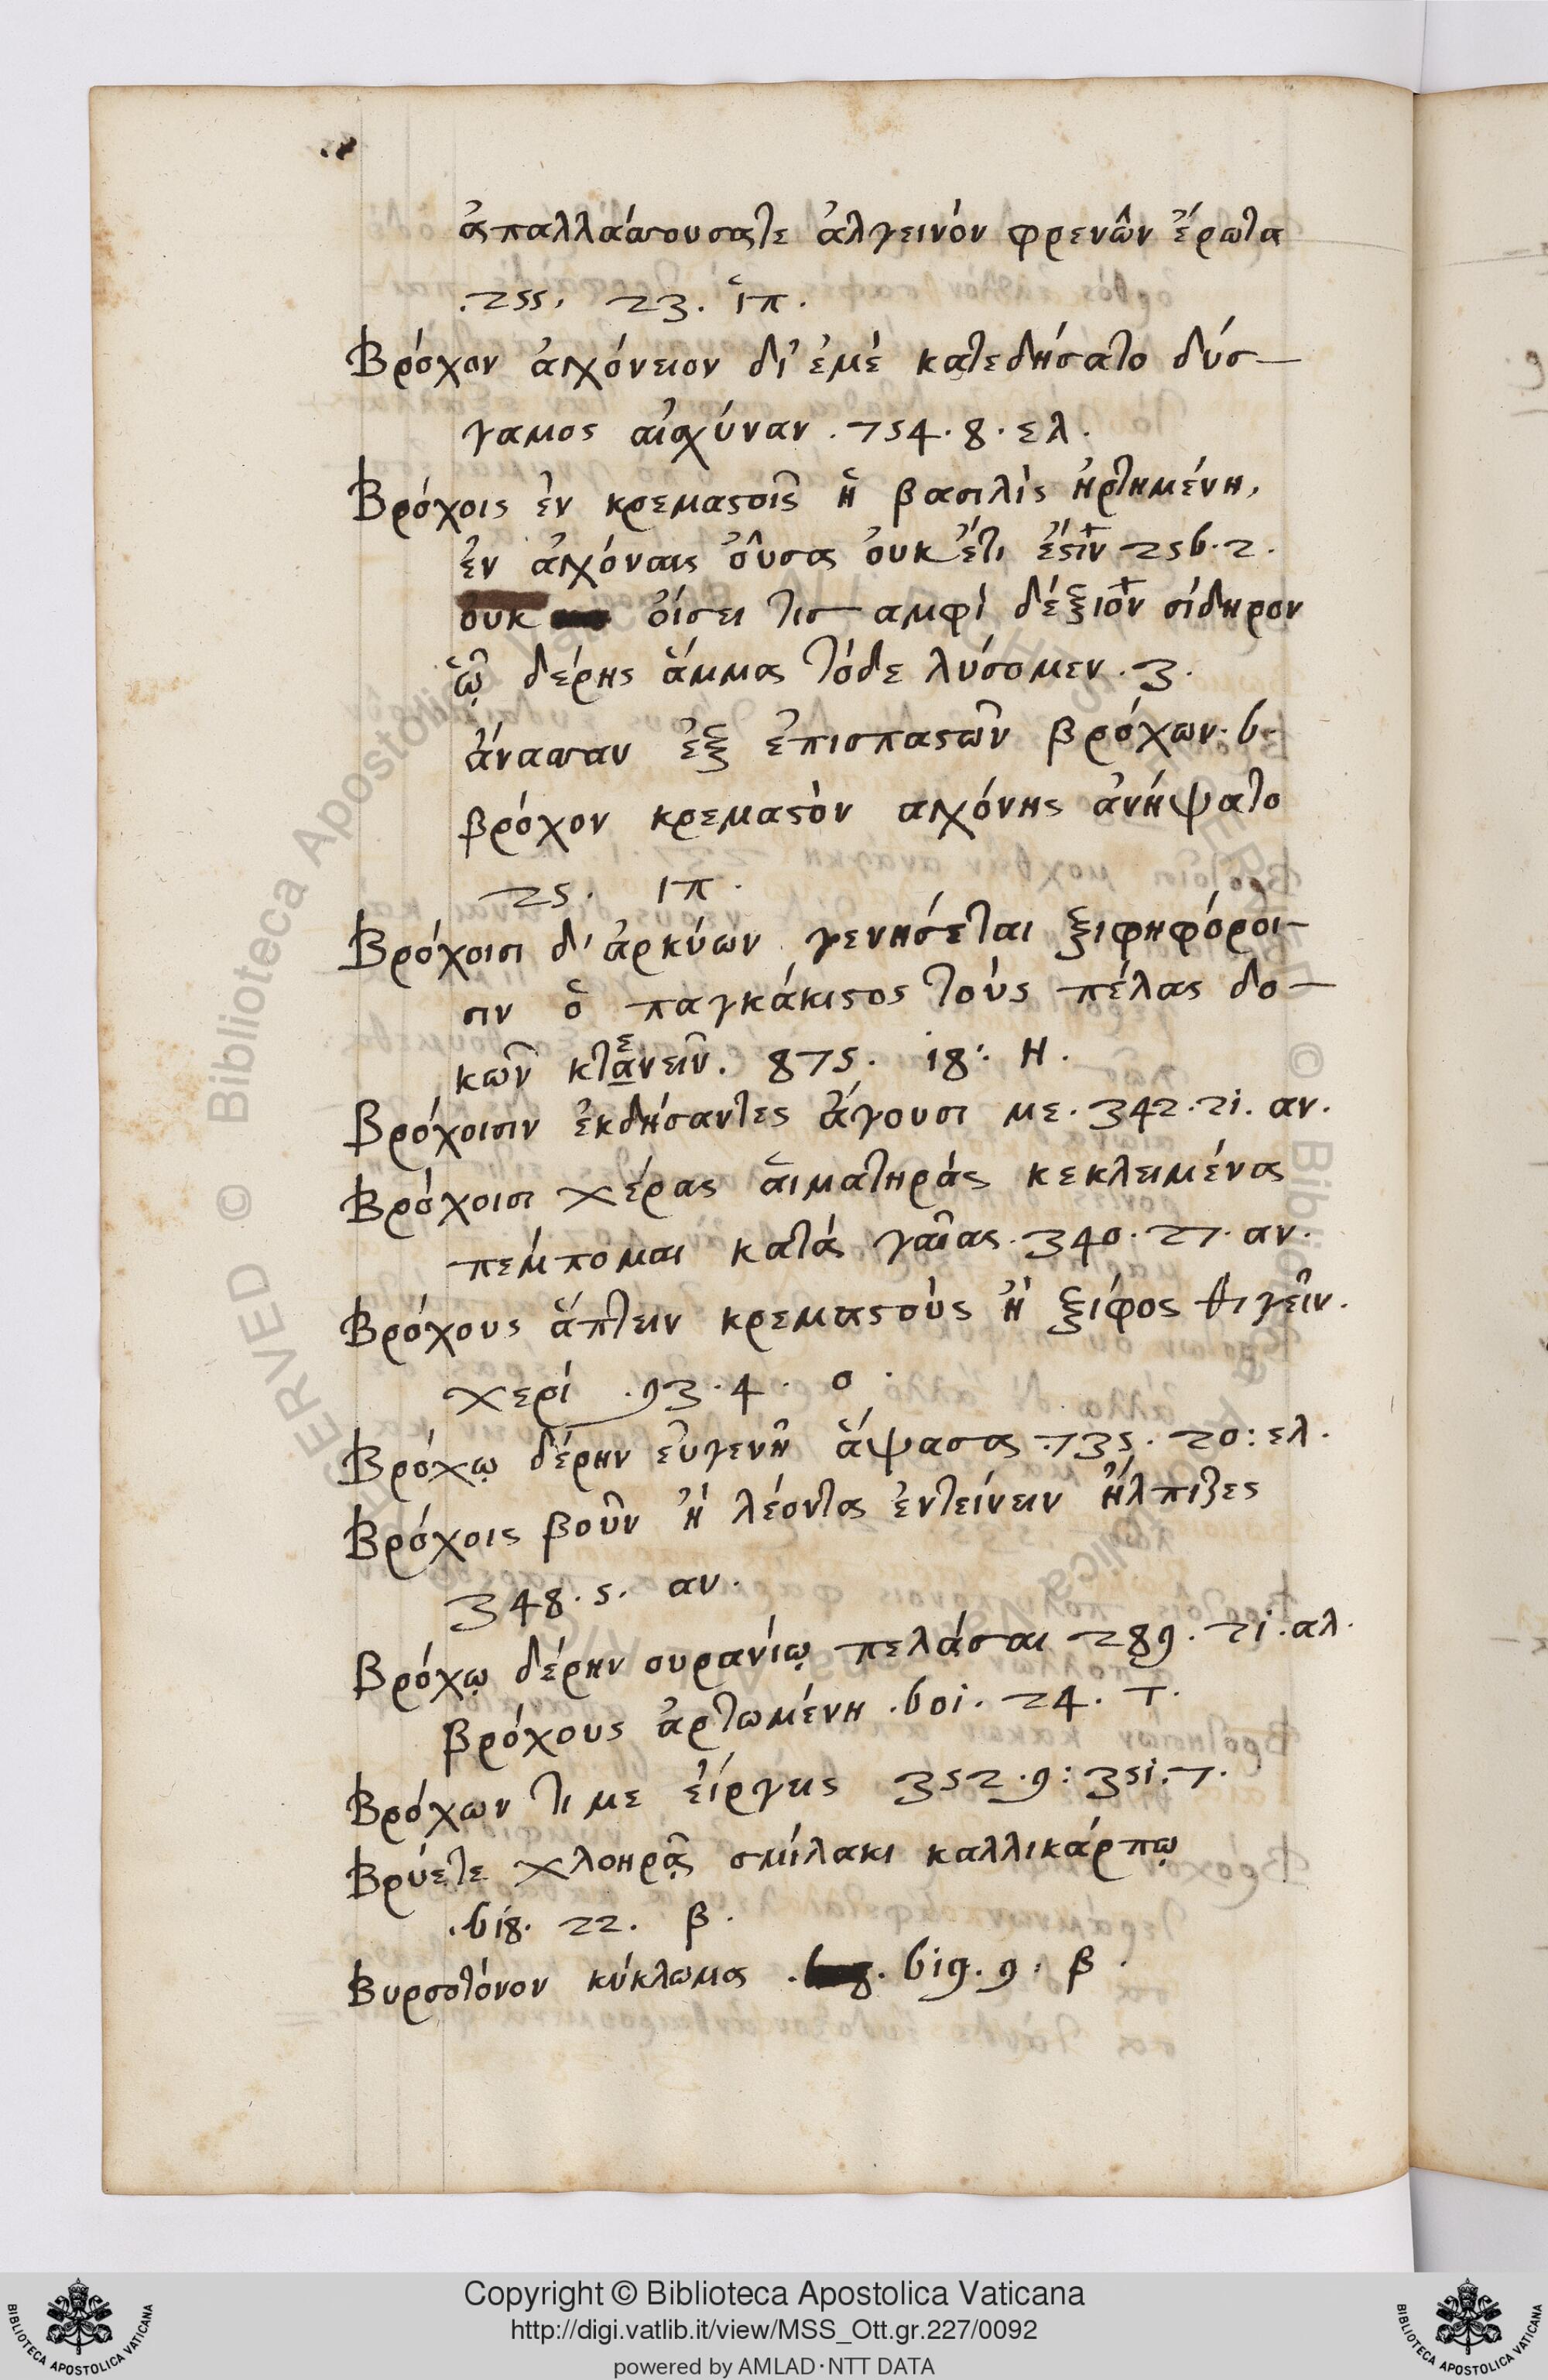 ἀπαλλάσσουσατε ἀλγεινὸν φρενῶν ἔρωτα
.255. 23. ἱπ.
Βρόχον ἀγχόνειον δι' ἐμὲ κατεδήσατο δύσ-
γαμος αἰσχύναν. 754. 8. ελ.
Βρόχοις ἐν κρεμαστοῖς ἡ βασιλὶς ἠρτημένη,
ἐν ἀγχόναις οὖσα οὐκ ἔτι ἔστιν 256. 2.
ουκ οἴσει τις αμφὶ δέξιον σίδηρον
ᾧ δέρης ἅμμα τόδε λύσομεν. 3.
ἄναψαν ἐξ ἐπισπαστῶν βρόχων. 6.
βρόχον κρεμαστὸν αγχόνης ἀνήψατο
25. ιπ.
Βρόχοισι δ' ἀρκύων γενήσεται ξιφηφόροι-
σιν ὁ παγκάκιστος τοὺς πέλας δο-
κῶν κτανεῖν. 875. 18: Η.
Βρόχοισιν ἐκδήσαντες ἄγουσι με. 342. 21. αν.
Βρόχοισι χέρας αἱματηρὰς κεκλειμένα
πέμπομαι κατὰ γαίας. 340. 27. αν.
Βρόχους ἅπτειν κρεμαστοὺς ἢ ξίφος θιγεῖν.
χερί .93. 4. ο.
Βρόχῳ δέρην εὐγενῆ ἅψασα .735. 20: ελ.
Βρόχοις βοῦν ἢ λέοντα ἐντείνειν ἤλπιζες
348. 5. αν.
Βρόχῳ δέρην ουρανίῳ πελάσαι 289. 21. αλ.
βρόχους ἀρτωμένη .601. 24. τ.
Βρόχων τι με εἴργεις 352. 9: 351. 7.
Βρύετε χλοηρᾷ σμίλακι καλλικάρπῳ
.618. 22. β.
Βυρσοτόνον κύκλωμα . 619. 9. β.
Copyright © Biblioteca Apostolica Vaticana
http://digi.vatlib.it/view/MSS_Ott.gr.227/0092
powered by AMLAD·NTT DATA